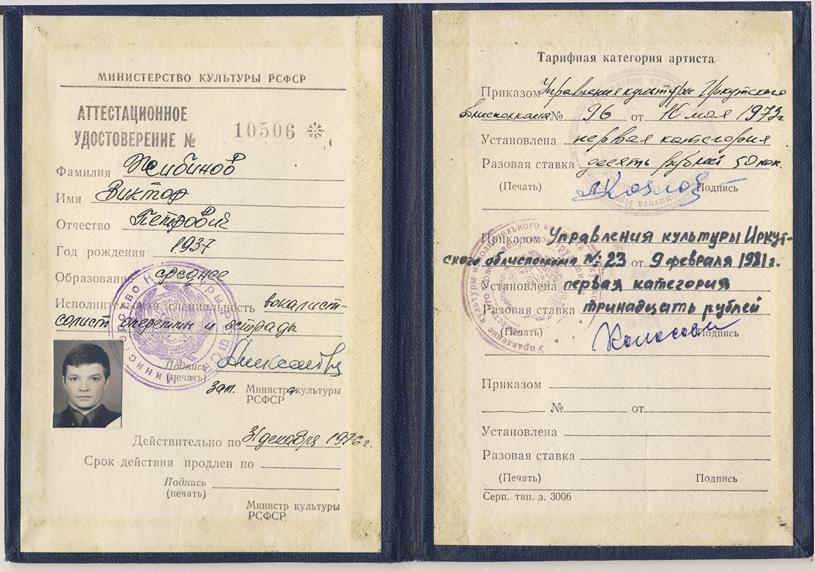 МИНИСТЕРСТВО КУЛЬТУРЫ РСФСР
АТТЕСТАЦИОННОЕ
УДОСТОВЕРЕНИЕ № 10506
Фамилия Жибинов
Имя Виктор
Отчество Петрович
Год рождения 1937
Образование среднее
Исполнительская специальность вокалист-
солист оперетты и эстрады
Подпись
(печать)
зам. Министра культуры
РСФСР
Действительно по 31 декабря 1976г.
Срок действия продлен по
Подпись
(печать)
Министр культуры
РСФСР
Тарифная категория артиста
Приказом Управления культуры Иркутского
облисполкома № 96 от 16 мая 1973г
Установлена первая категория
Разовая ставка десять рублей 50 коп.
(Печать) Подпись
Приказом Управления культуры Иркут-
ского облисполкома № 23 от 9 февраля 1981г.
Установлена первая категория
Разовая ставка тринадцать рублей
(Печать) Подпись
Приказом
№ от
Установлена
Разовая ставка
(Печать) Подпись
Серп. тип. з. 3006